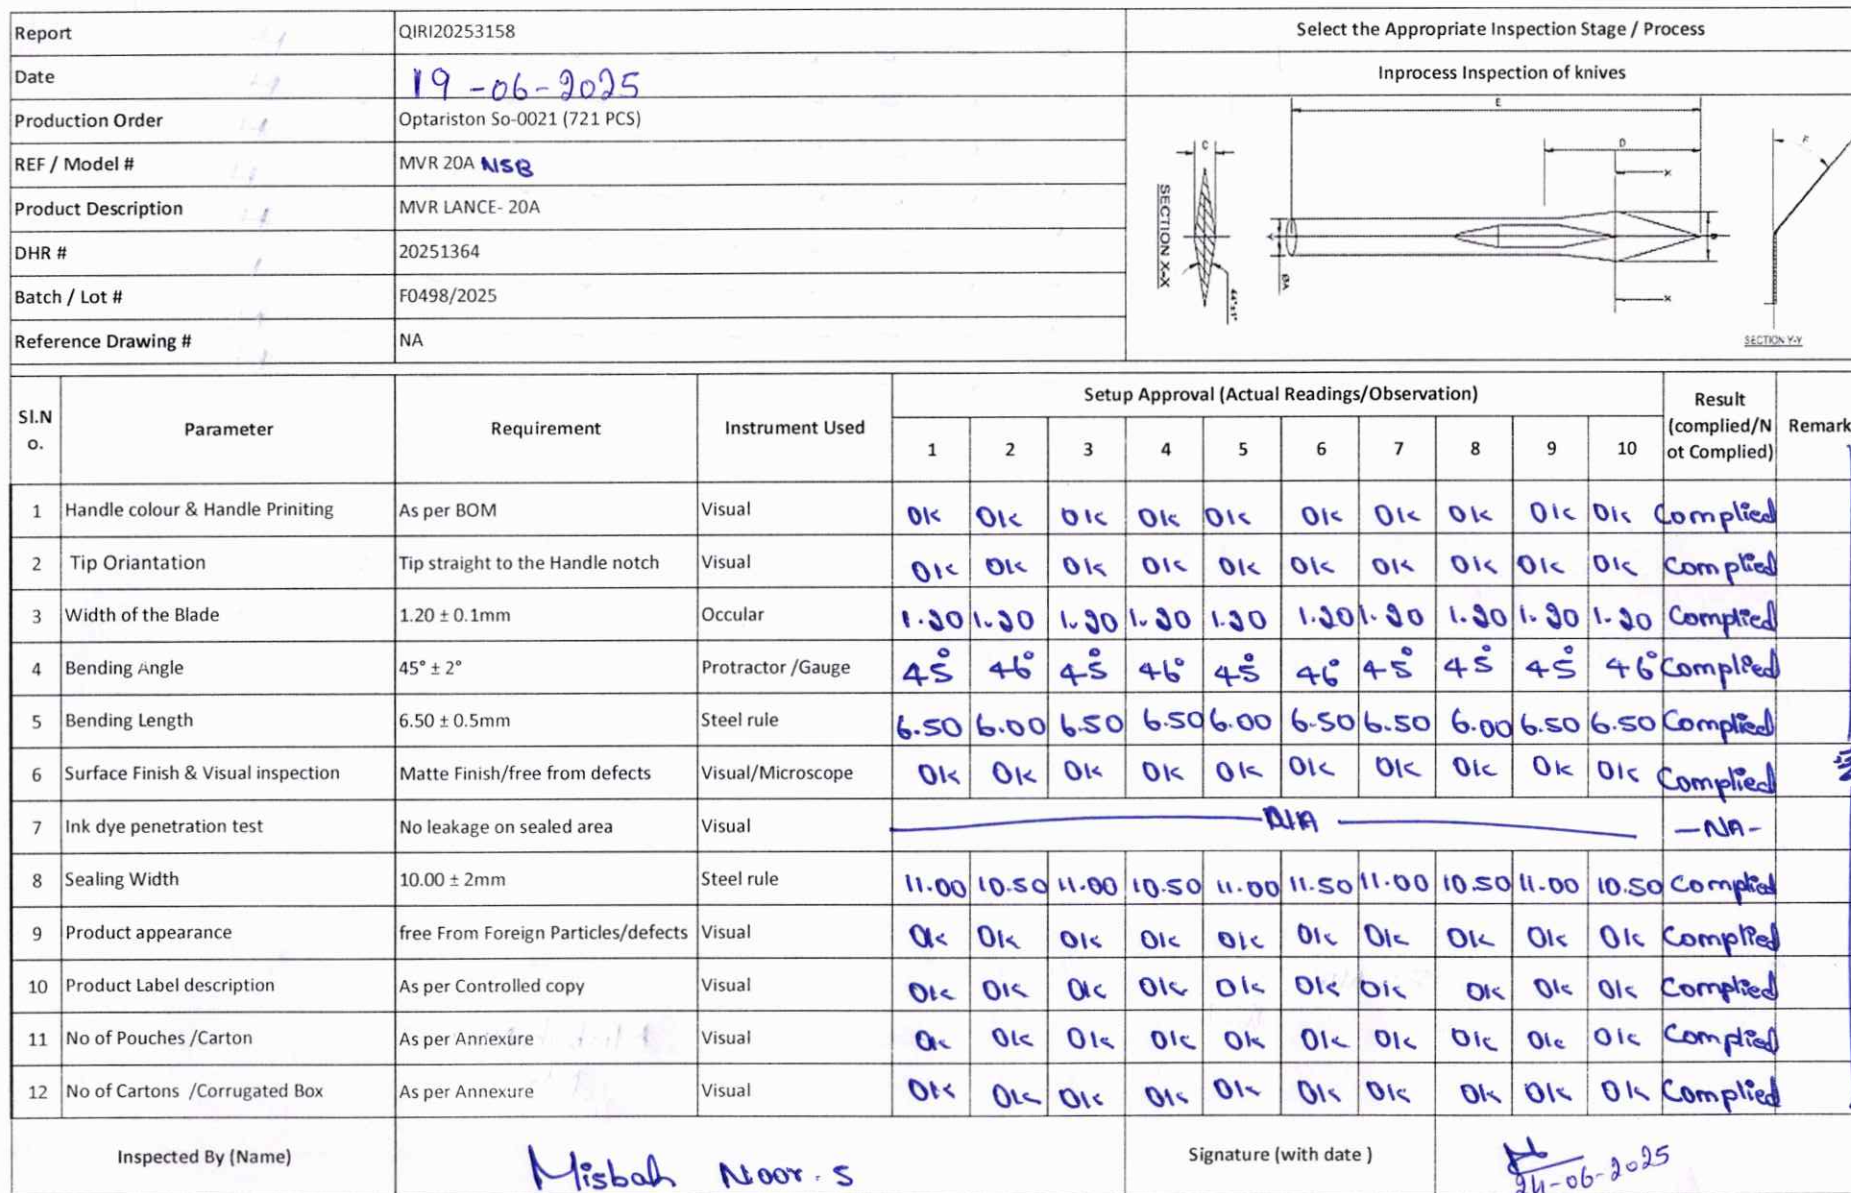 Report QIRI20253158 Select the Appropriate Inspection Stage / Process
Date 19-06-2025 Inprocess Inspection of knives
Production Order Optariston So-0021 (721 PCS)
REF / Model # MVR 20A NSB
Product Description MVR LANCE- 20A
DHR # 20251364
Batch / Lot # F0498/2025
Reference Drawing # NA
E
C
D
X
SECTION X-X
X
SECTION Y-Y
Sl.No. Parameter Requirement Instrument Used Setup Approval (Actual Readings/Observation) Result (complied/Not Complied) Remark
1 2 3 4 5 6 7 8 9 10
1 Handle colour & Handle Priniting As per BOM Visual OK OK OK OK OK OK OK OK OK OK Complied
2 Tip Oriantation Tip straight to the Handle notch Visual OK OK OK OK OK OK OK OK OK OK Complied
3 Width of the Blade 1.20 ± 0.1mm Occular 1.20 1.20 1.20 1.20 1.20 1.20 1.20 1.20 1.20 1.20 Complied
4 Bending Angle 45° ± 2° Protractor /Gauge 45° 46° 45° 46° 45° 46° 45° 45° 45° 46° Complied
5 Bending Length 6.50 ± 0.5mm Steel rule 6.50 6.00 6.50 6.50 6.00 6.50 6.50 6.00 6.50 6.50 Complied
6 Surface Finish & Visual inspection Matte Finish/free from defects Visual/Microscope OK OK OK OK OK OK OK OK OK OK Complied
7 Ink dye penetration test No leakage on sealed area Visual N/A -NA-
8 Sealing Width 10.00 ± 2mm Steel rule 11.00 10.50 11.00 10.50 11.00 11.50 11.00 10.50 11.00 10.50 Complied
9 Product appearance free From Foreign Particles/defects Visual OK OK OK OK OK OK OK OK OK OK Complied
10 Product Label description As per Controlled copy Visual OK OK OK OK OK OK OK OK OK OK Complied
11 No of Pouches /Carton As per Annexure Visual OK OK OK OK OK OK OK OK OK OK Complied
12 No of Cartons /Corrugated Box As per Annexure Visual OK OK OK OK OK OK OK OK OK OK Complied
Inspected By (Name) Misbah Noor.S Signature (with date ) 24-06-2025